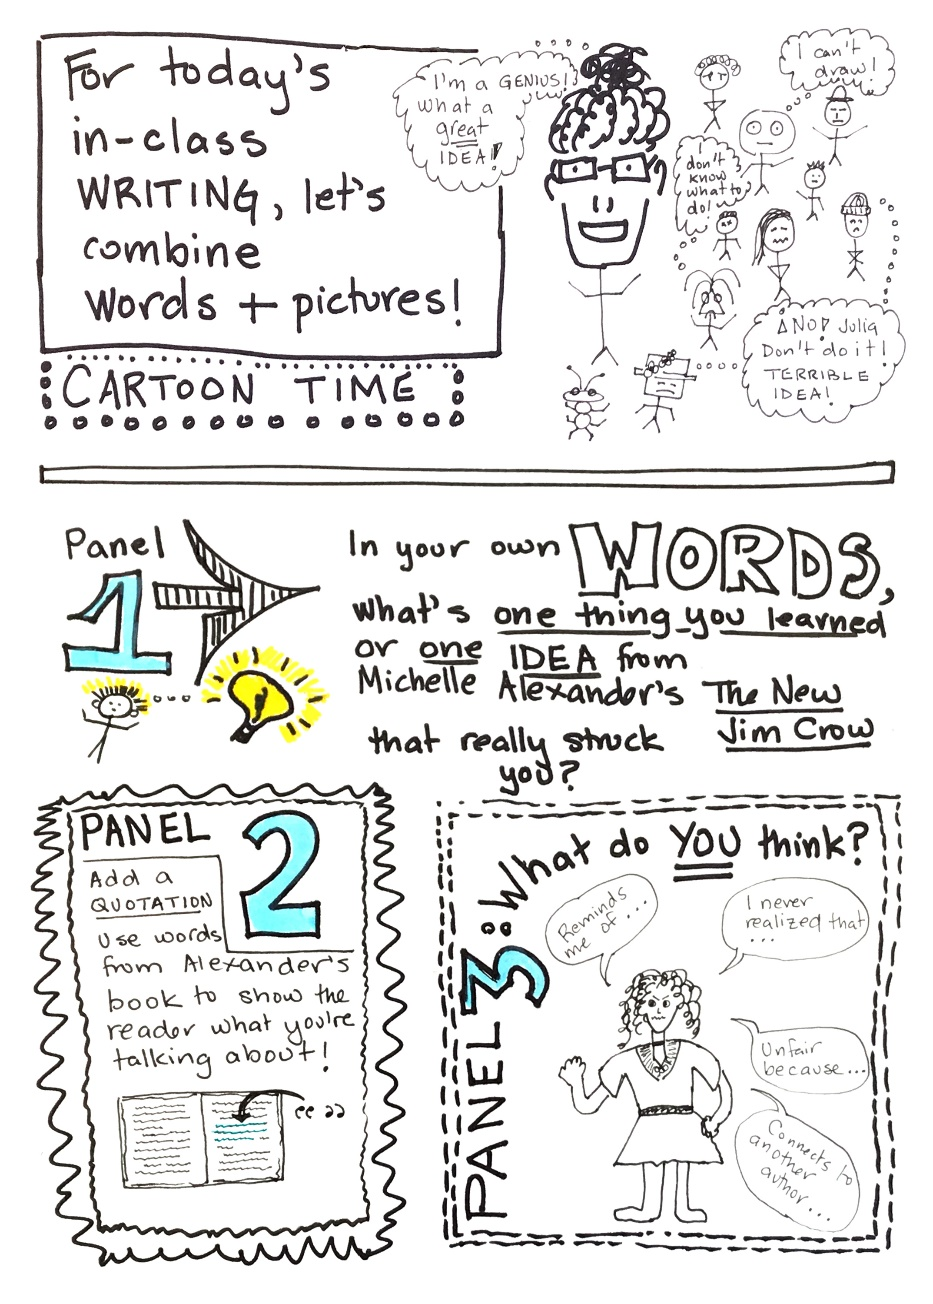 For today's
in-class
WRITING, let's
combine
words + pictures!
CARTOON TIME
I'm a GENIUS!
what a
great
IDEA!
I can't
draw!
I
don't
know
what to
do!
NO! Julia
Don't do it!
TERRIBLE
IDEA!
Panel
1
In your own WORDS,
what's one thing you learned
or one IDEA from
Michelle Alexander's The New
Jim Crow
that really struck
you?
PANEL
2
Add a
QUOTATION
Use words
from Alexander's
book to show the
reader what you're
talking about!
PANEL 3: What do YOU think?
Reminds
me of ...
I never
realized that
...
Unfair
because...
Connects to
another
author...